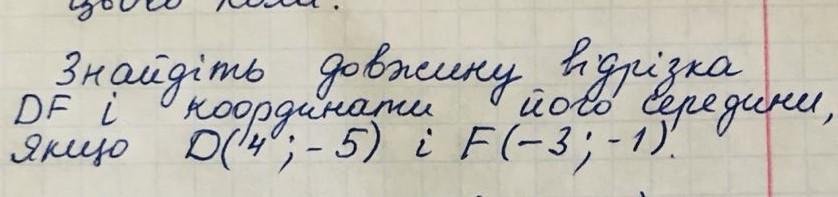 цього кола.
Знайдіть довжину відрізка
DF і координати його середини,
якщо D(4;-5) і F(-3;-1).